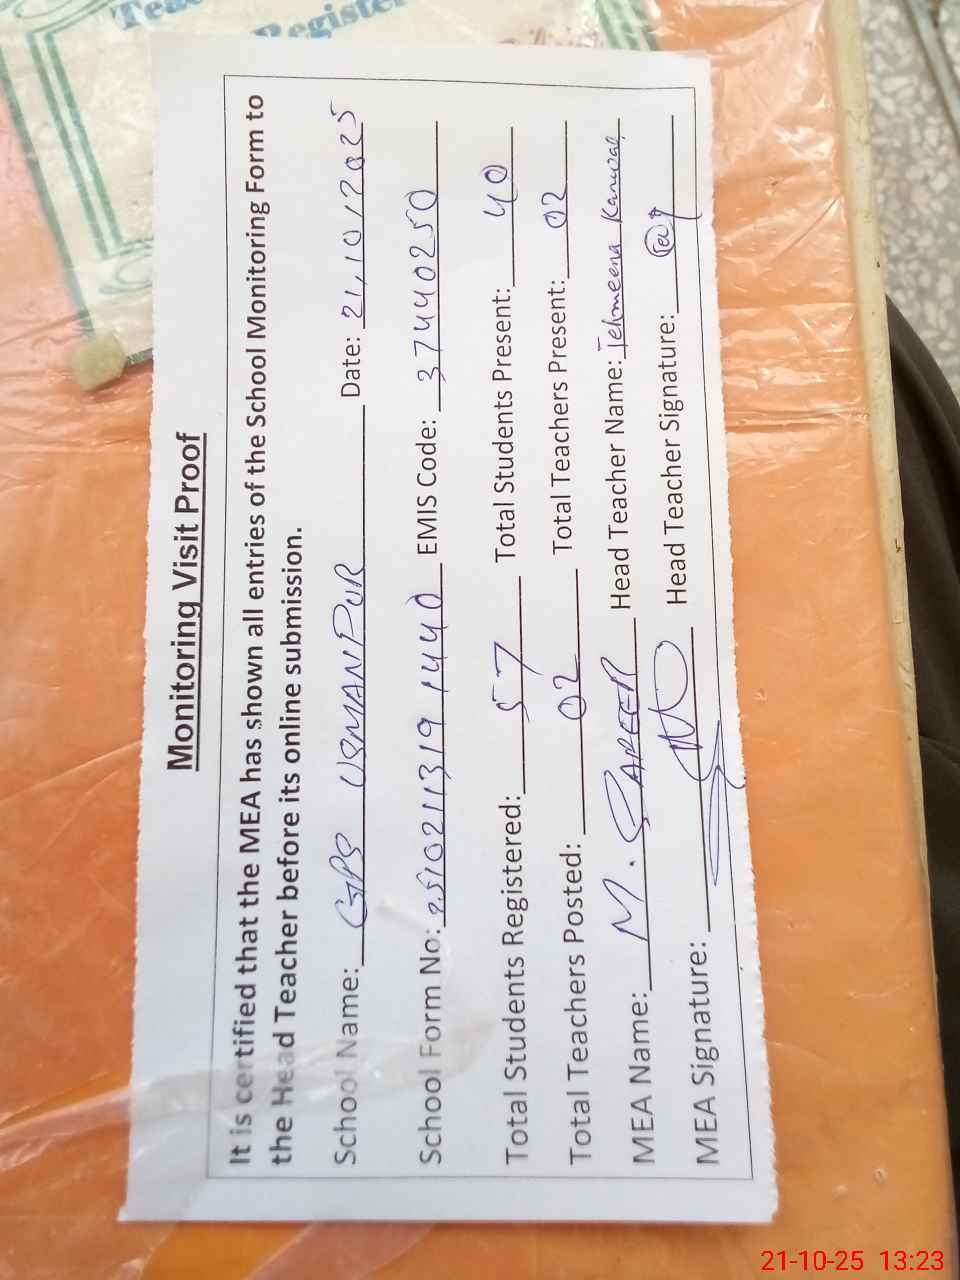 Register
Monitoring Visit Proof
It is certified that the MEA has shown all entries of the School Monitoring Form to
the Head Teacher before its online submission.
School Name: GPS USMANPUR Date: 21/10/2025
School Form No: 2510211319 1440 EMIS Code: 37440250
Total Students Registered: 57 Total Students Present: 40
Total Teachers Posted: 02 Total Teachers Present: 02
MEA Name: M. SAREER Head Teacher Name: Tehmeena Kanwal
MEA Signature: Head Teacher Signature:
21-10-25 13:23